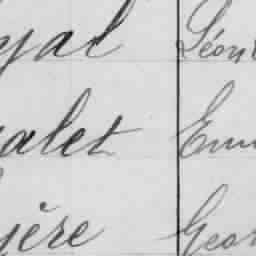 yal Léon
alet Em
ère Geor